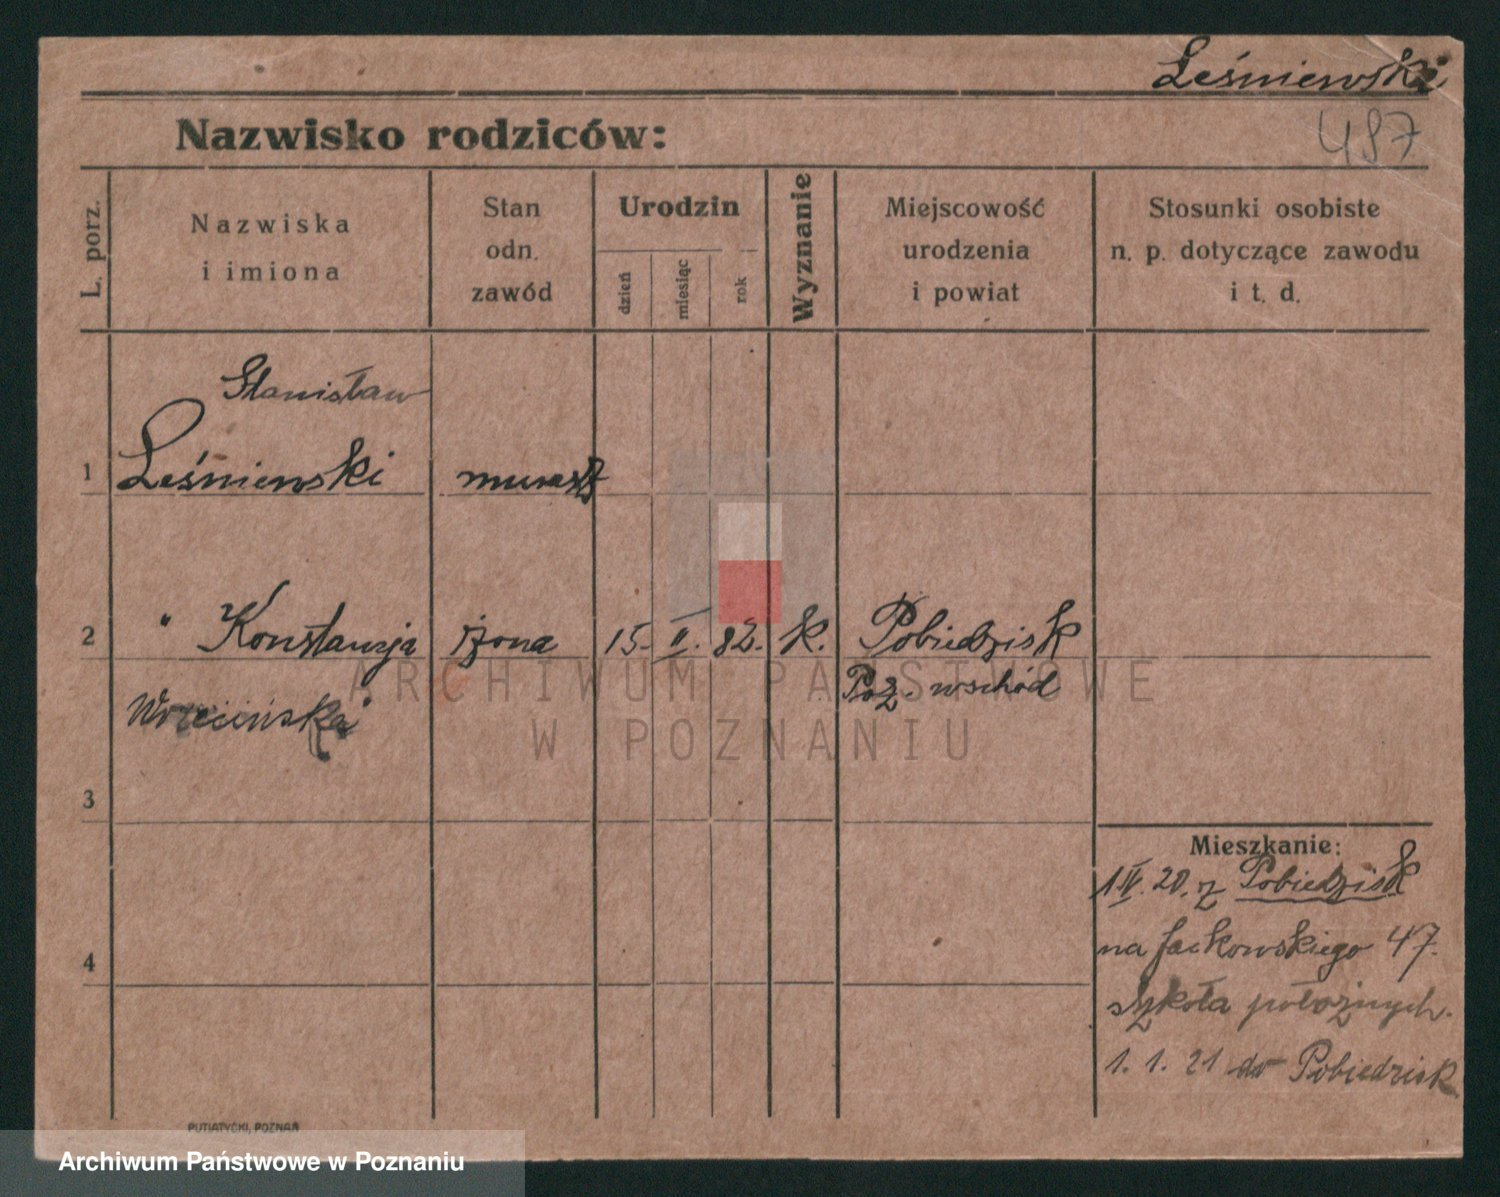 Leśniewski
Nazwisko rodziców:
487
L. porz.
Nazwiska
i imiona
Stan
odn.
zawód
Urodzin
dzień
miesiąc
rok
Wyznanie
Miejscowość
urodzenia
i powiat
Stosunki osobiste
n. p. dotyczące zawodu
i t. d.
Stanisław
1 Leśniewski murarz
2 " Konstancja żona 15. II. 82. k. Pobiedzisk
Poz. wschód
3
4
Mieszkanie:
1 IV. 20. z Pobiedzisk
na Jackowskiego 47.
szkoła położnych.
1. 1. 21 do Pobiedzisk
PUTIATYCKI, POZNAŃ
ARCHIWUM PAŃSTWOWE
W POZNANIU
Archiwum Państwowe w Poznaniu